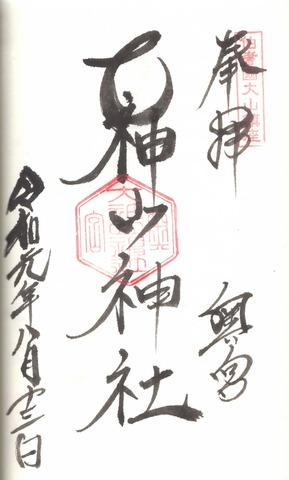 伯耆國大山鎮座
奉拝
奥宮
大神山神社
令和元年八月十三日